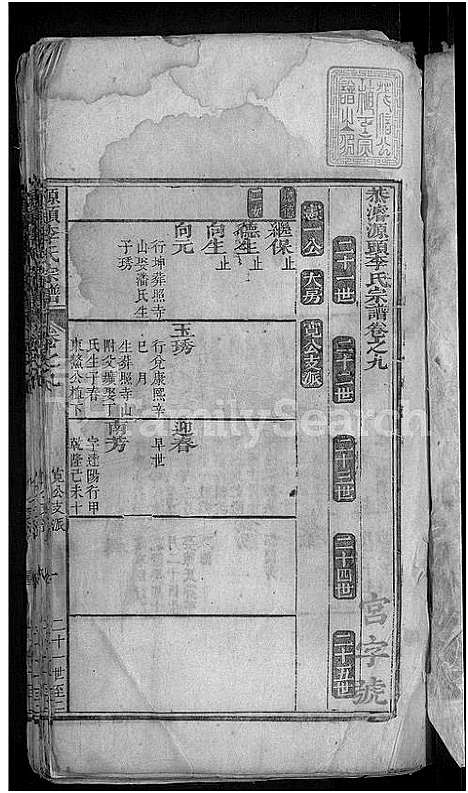 恭濬源頭李氏宗譜卷之九
二十一世
二十二世
二十三世
二十四世
二十五世
宮字號
一公
大房
寬公支派
繼保
止
德生
止
向生
止
向元
行坤葬照寺
山娶潘氏生
子琇
玉琇
行兌康熙辛
巳月
生葬照寺山
附父壙娶丁
氏生子春
東鰲公柩下
迎春
早世
南芳
字達陽行甲
乾隆己未十
源頭李氏宗譜
卷之九
寬公支派
一
二十一世至二
FamilySearch